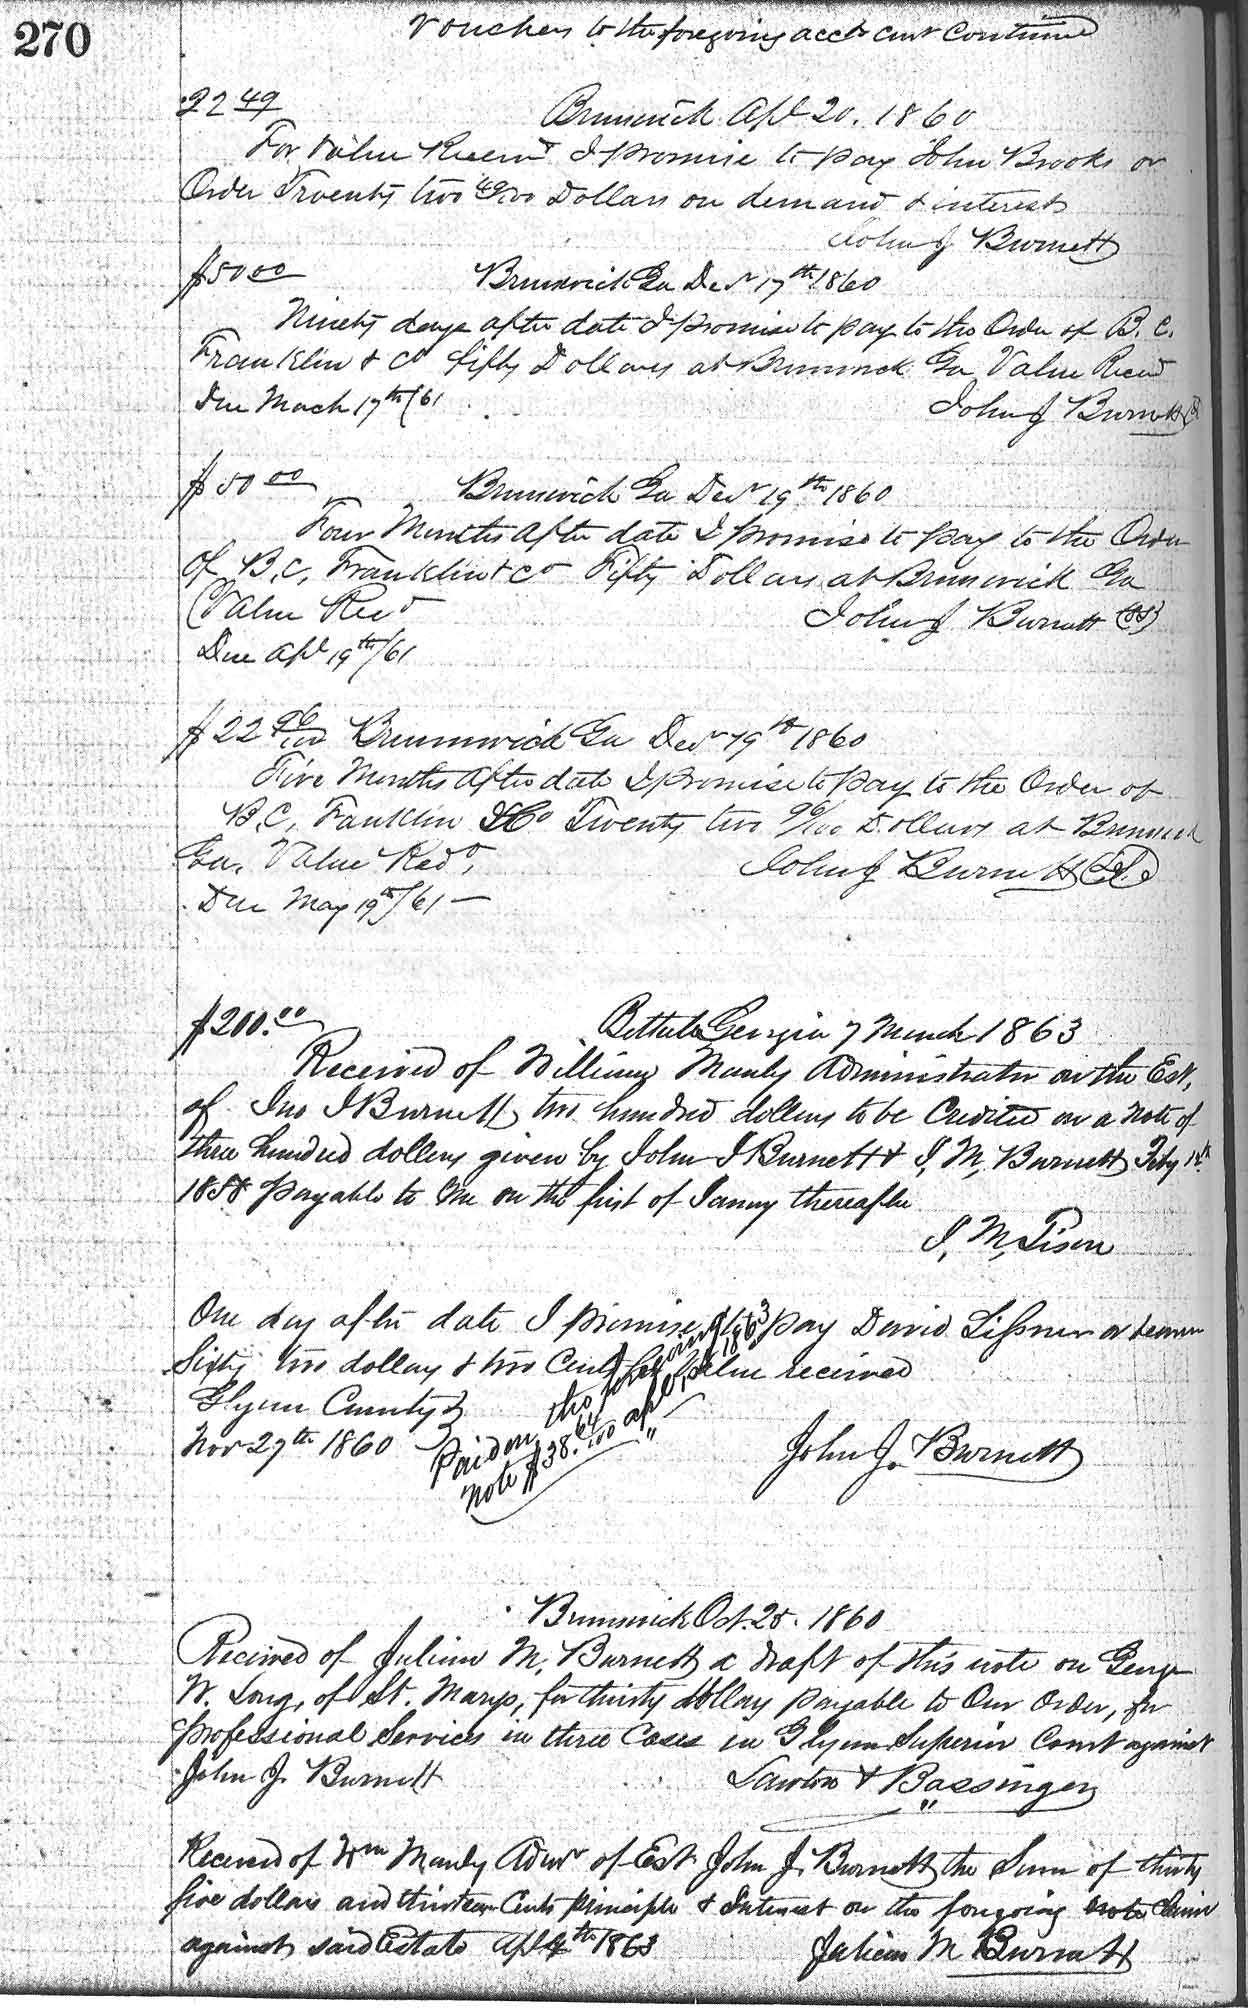 270
Vouchers to the foregoing acct curt Continued
22 49
Brunswick Apl 20. 1860
For Value Receivd I promise to pay John Brooks or
Order Twenty two 49/100 Dollars on demand & interest
John J Burnett
$50 00
Brunswick Ga Decr 17th 1860
Ninety days after date I promise to pay to the Order of B. C.
Franklin & Co fifty Dollars at Brunswick Ga Value Recd
Due Mach 17th/61
John J Burnett
$50 00
Brunswick Ga Decr 19th 1860
Four Months after date I promise to pay to the Order
of B. C. Franklin & Co Fifty Dollars at Brunswick Ga
Value Recd
John J Burnett (SS)
Due Apl 19th/61
$22 96/100 Brunnswick Ga Decr 19th 1860
Five Months after date I promise to pay to the Order of
B. C. Fanklin & Co Twenty two 96/100 Dollars at Brunswick
Ga. Value Recd,
John J Burnett
Due May 19th/61 —
$200.00
Bethel Georgia 7 March 1863
Received of William Manly Administrator on the Est,
of Jno J Burnett two hundred dollers to be Credited on a note of
three hundred dollers given by John J Burnett & J, M, Burnett Feby 12th
1858 payable to me on the first of Januy thereafter
J, M, Tison
One day after date I promise to pay David Lissner or bearer
Sixty two dollars & two Cents value received
Glynn County
Nov 27th 1860
Paid on the foregoing
note $38.64/100 apl 1863
John J. Burnett
Brunswick Oct. 25. 1860
Recived of Julian M, Burnett a draft of this note on George
W. Long, of St. Marys, for thirty dollars payable to Our Order, for
professional Services in three Cases in Glynn Superior Court against
John J. Burnett
Lawton & Bassinger
Received of Wm Manly Admr of Est John J. Burnett the Sum of thirty
five dollars and thirteen Cents principle & Interest on the foregoing note Claim
against said Estate Apl 4th 1863
Julian M Burnett